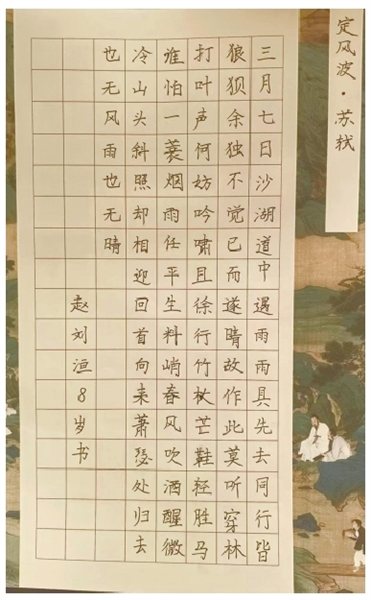 定风波·苏轼
三月七日沙湖道中遇雨雨具先去同行皆
狼狈余独不觉已而遂晴故作此莫听穿林
打叶声何妨吟啸且徐行竹杖芒鞋轻胜马
谁怕一蓑烟雨任平生料峭春风吹酒醒微
冷山头斜照却相迎回首向来萧瑟处归去
也无风雨也无晴
赵刘洹8岁书